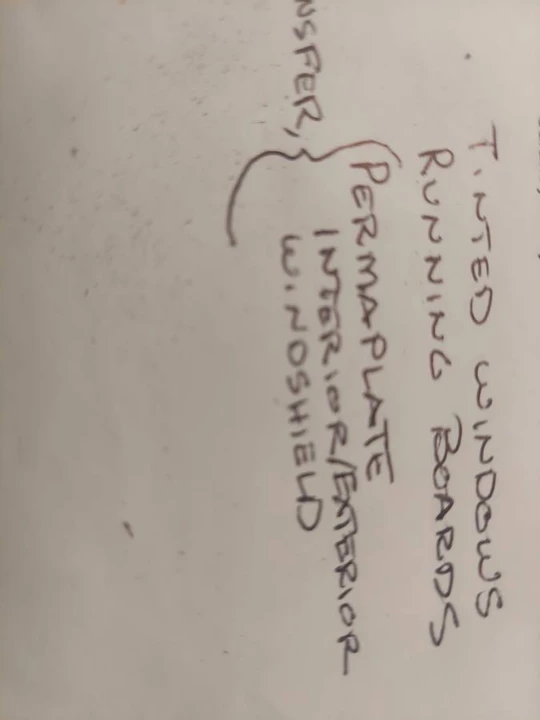 TINTED WINDOWS
RUNNING BOARDS
PERMAPLATE
INTERIOR/EXTERIOR
WINDSHIELD
NSFER,